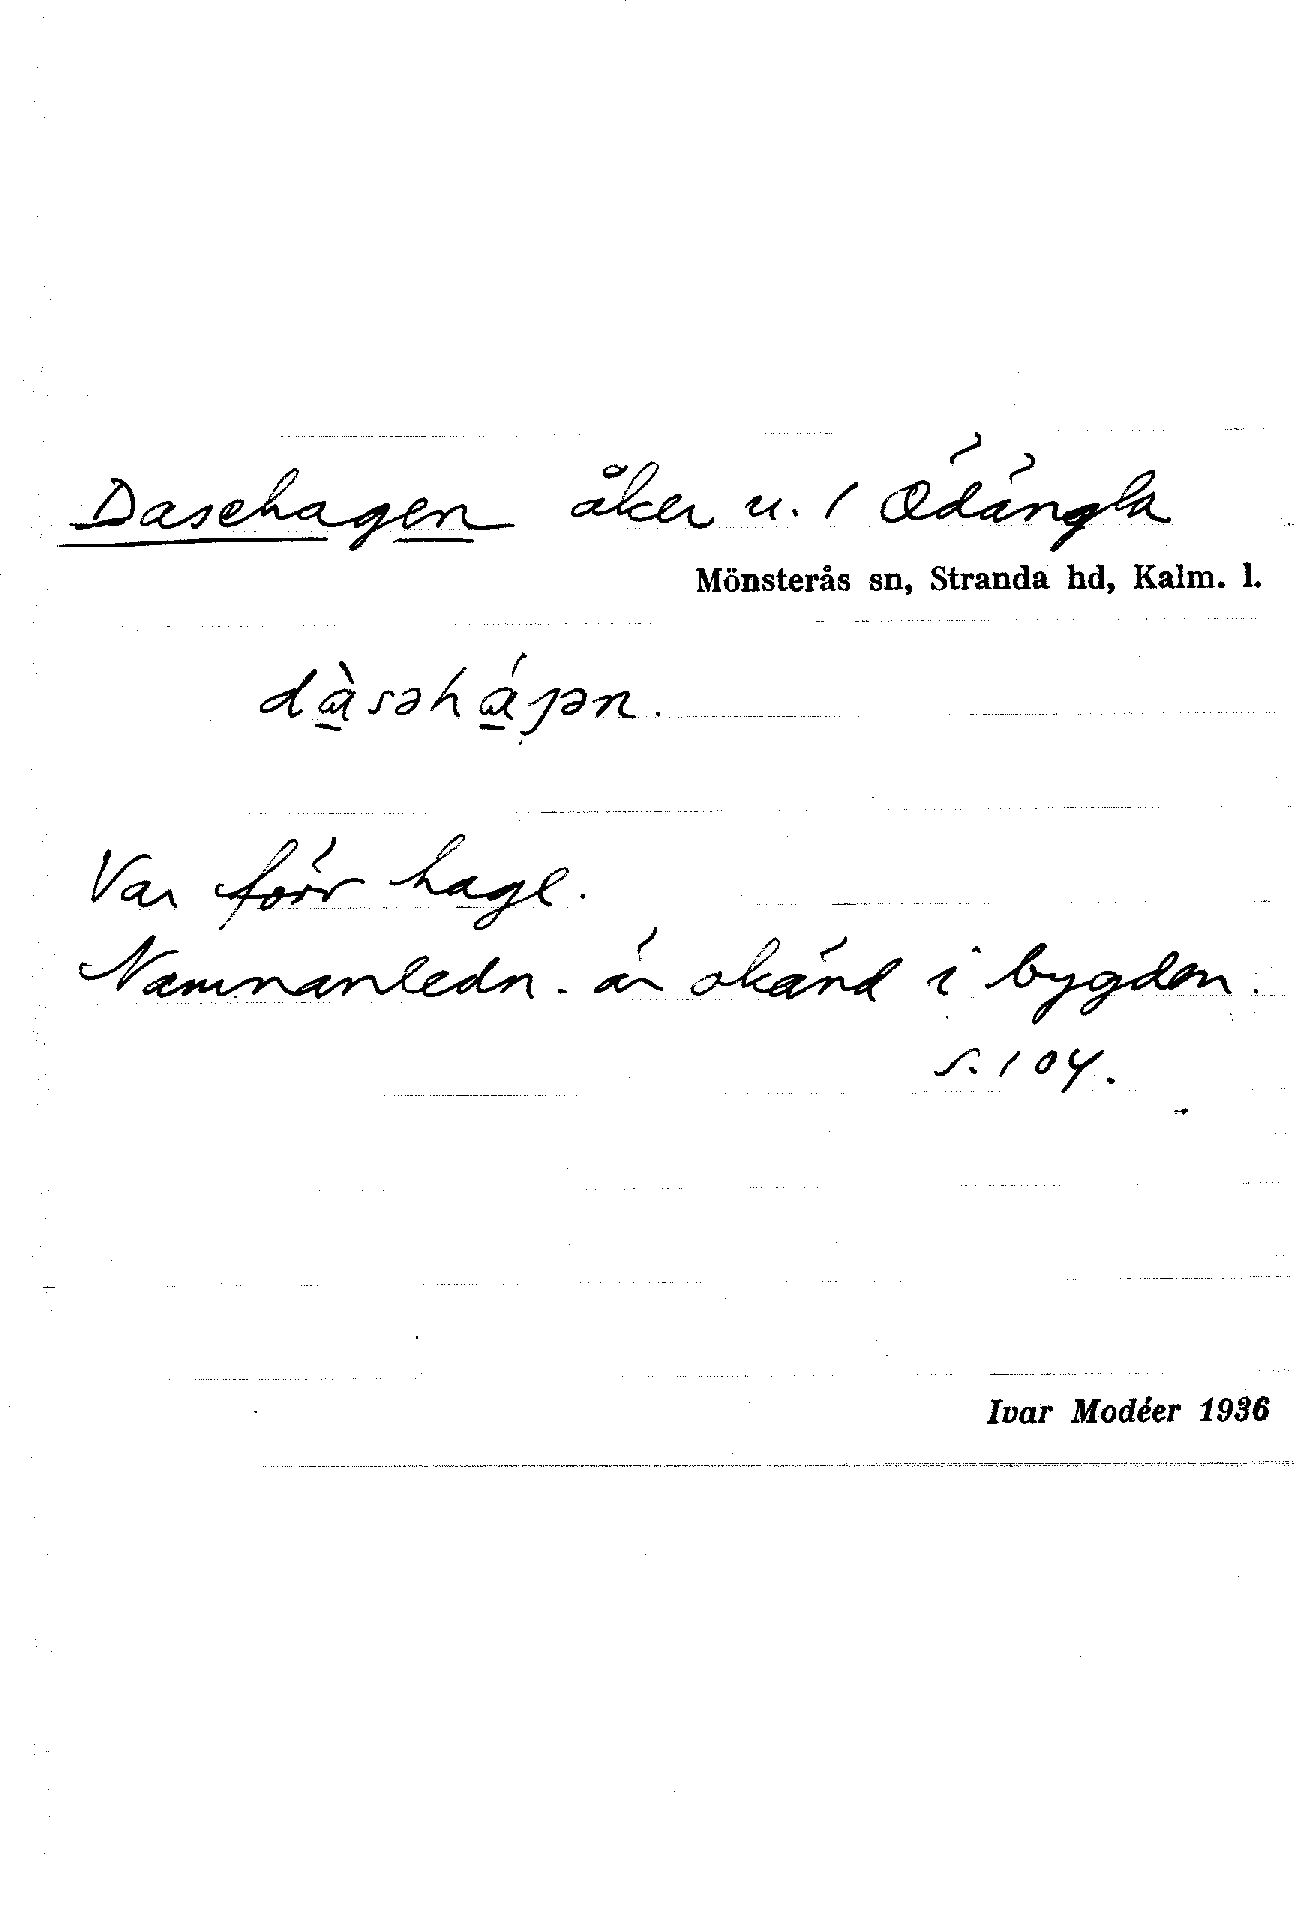 Dasehagen åker u. 1 Ödängla
Mönsterås sn, Stranda hd, Kalm. l.
dàsəhájən.
Var förr hage.
Namnanledn. är okänd i bygden.
s. 104.
Ivar Modéer 1936